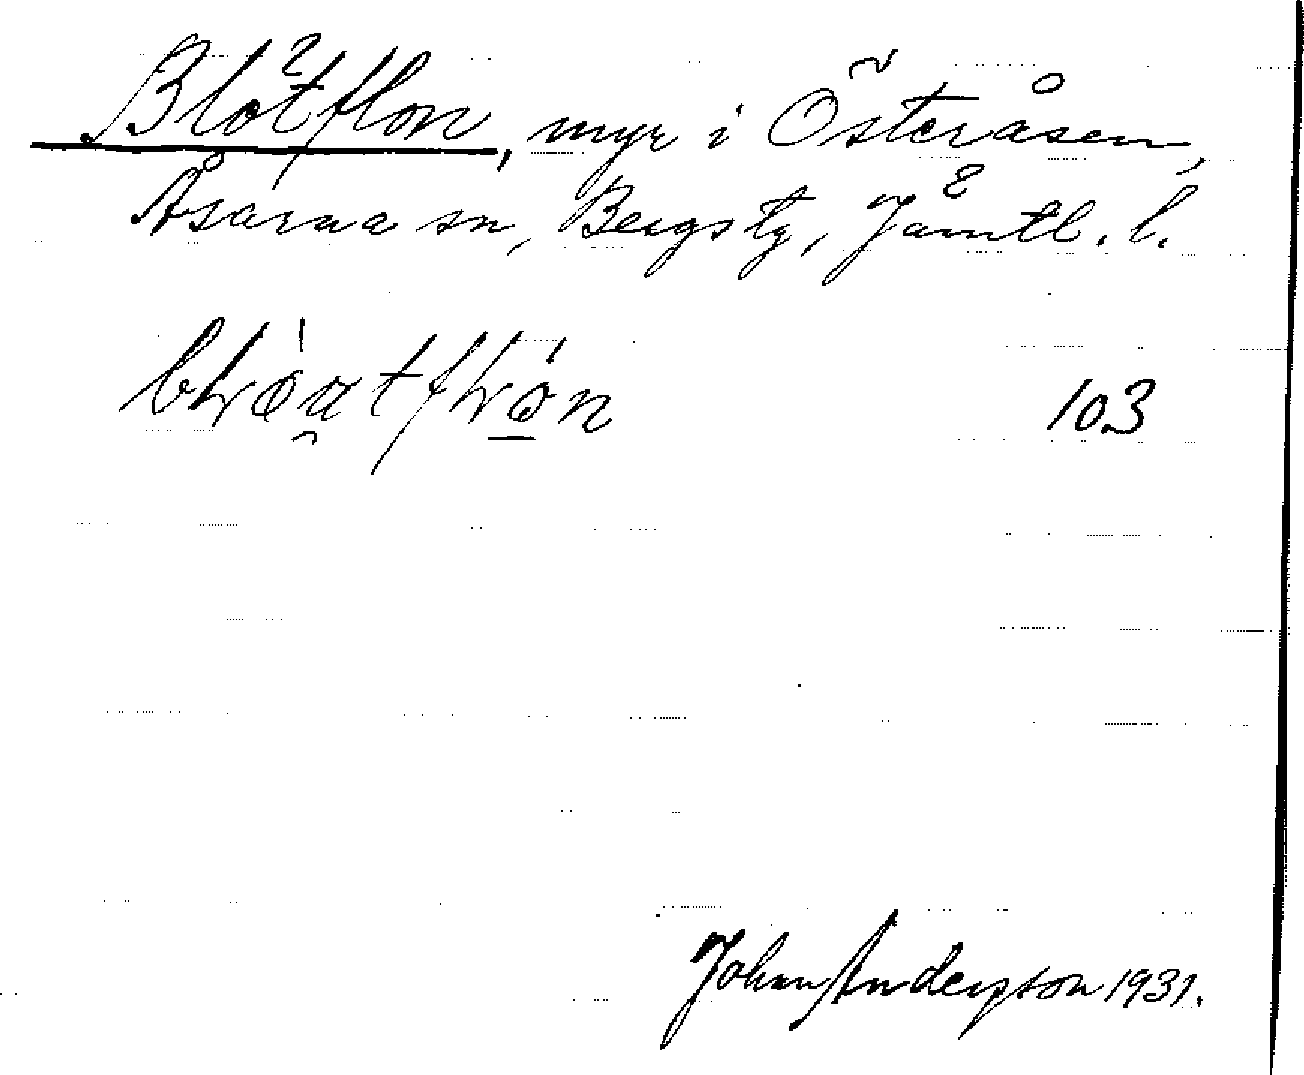 Blötflon, myr i Österåsen,
Åsarna sn, Bergs tg, Jämtl. l.
103
Johan Anderson 1931.